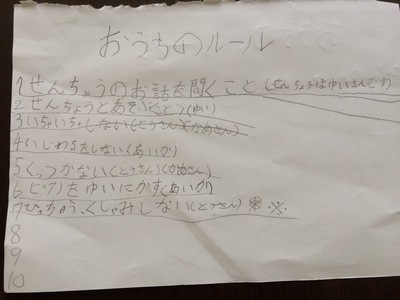 おうちのルール
1 せんちょうのお話を聞くこと(せんちょうはゆいさんです)
2 せんちょうとあそぶこと(ゆい)
3 いちゃいちゃしない(とうさん)(かあさん)
4 いじわるをしない(あいか)
5 くっつかない(とうさん)(かあさん)
6 ピアノをゆいにかす(あいか)
7 ひっちゅう、くしゃみしない(とうさん) ※ ※
8
9
10